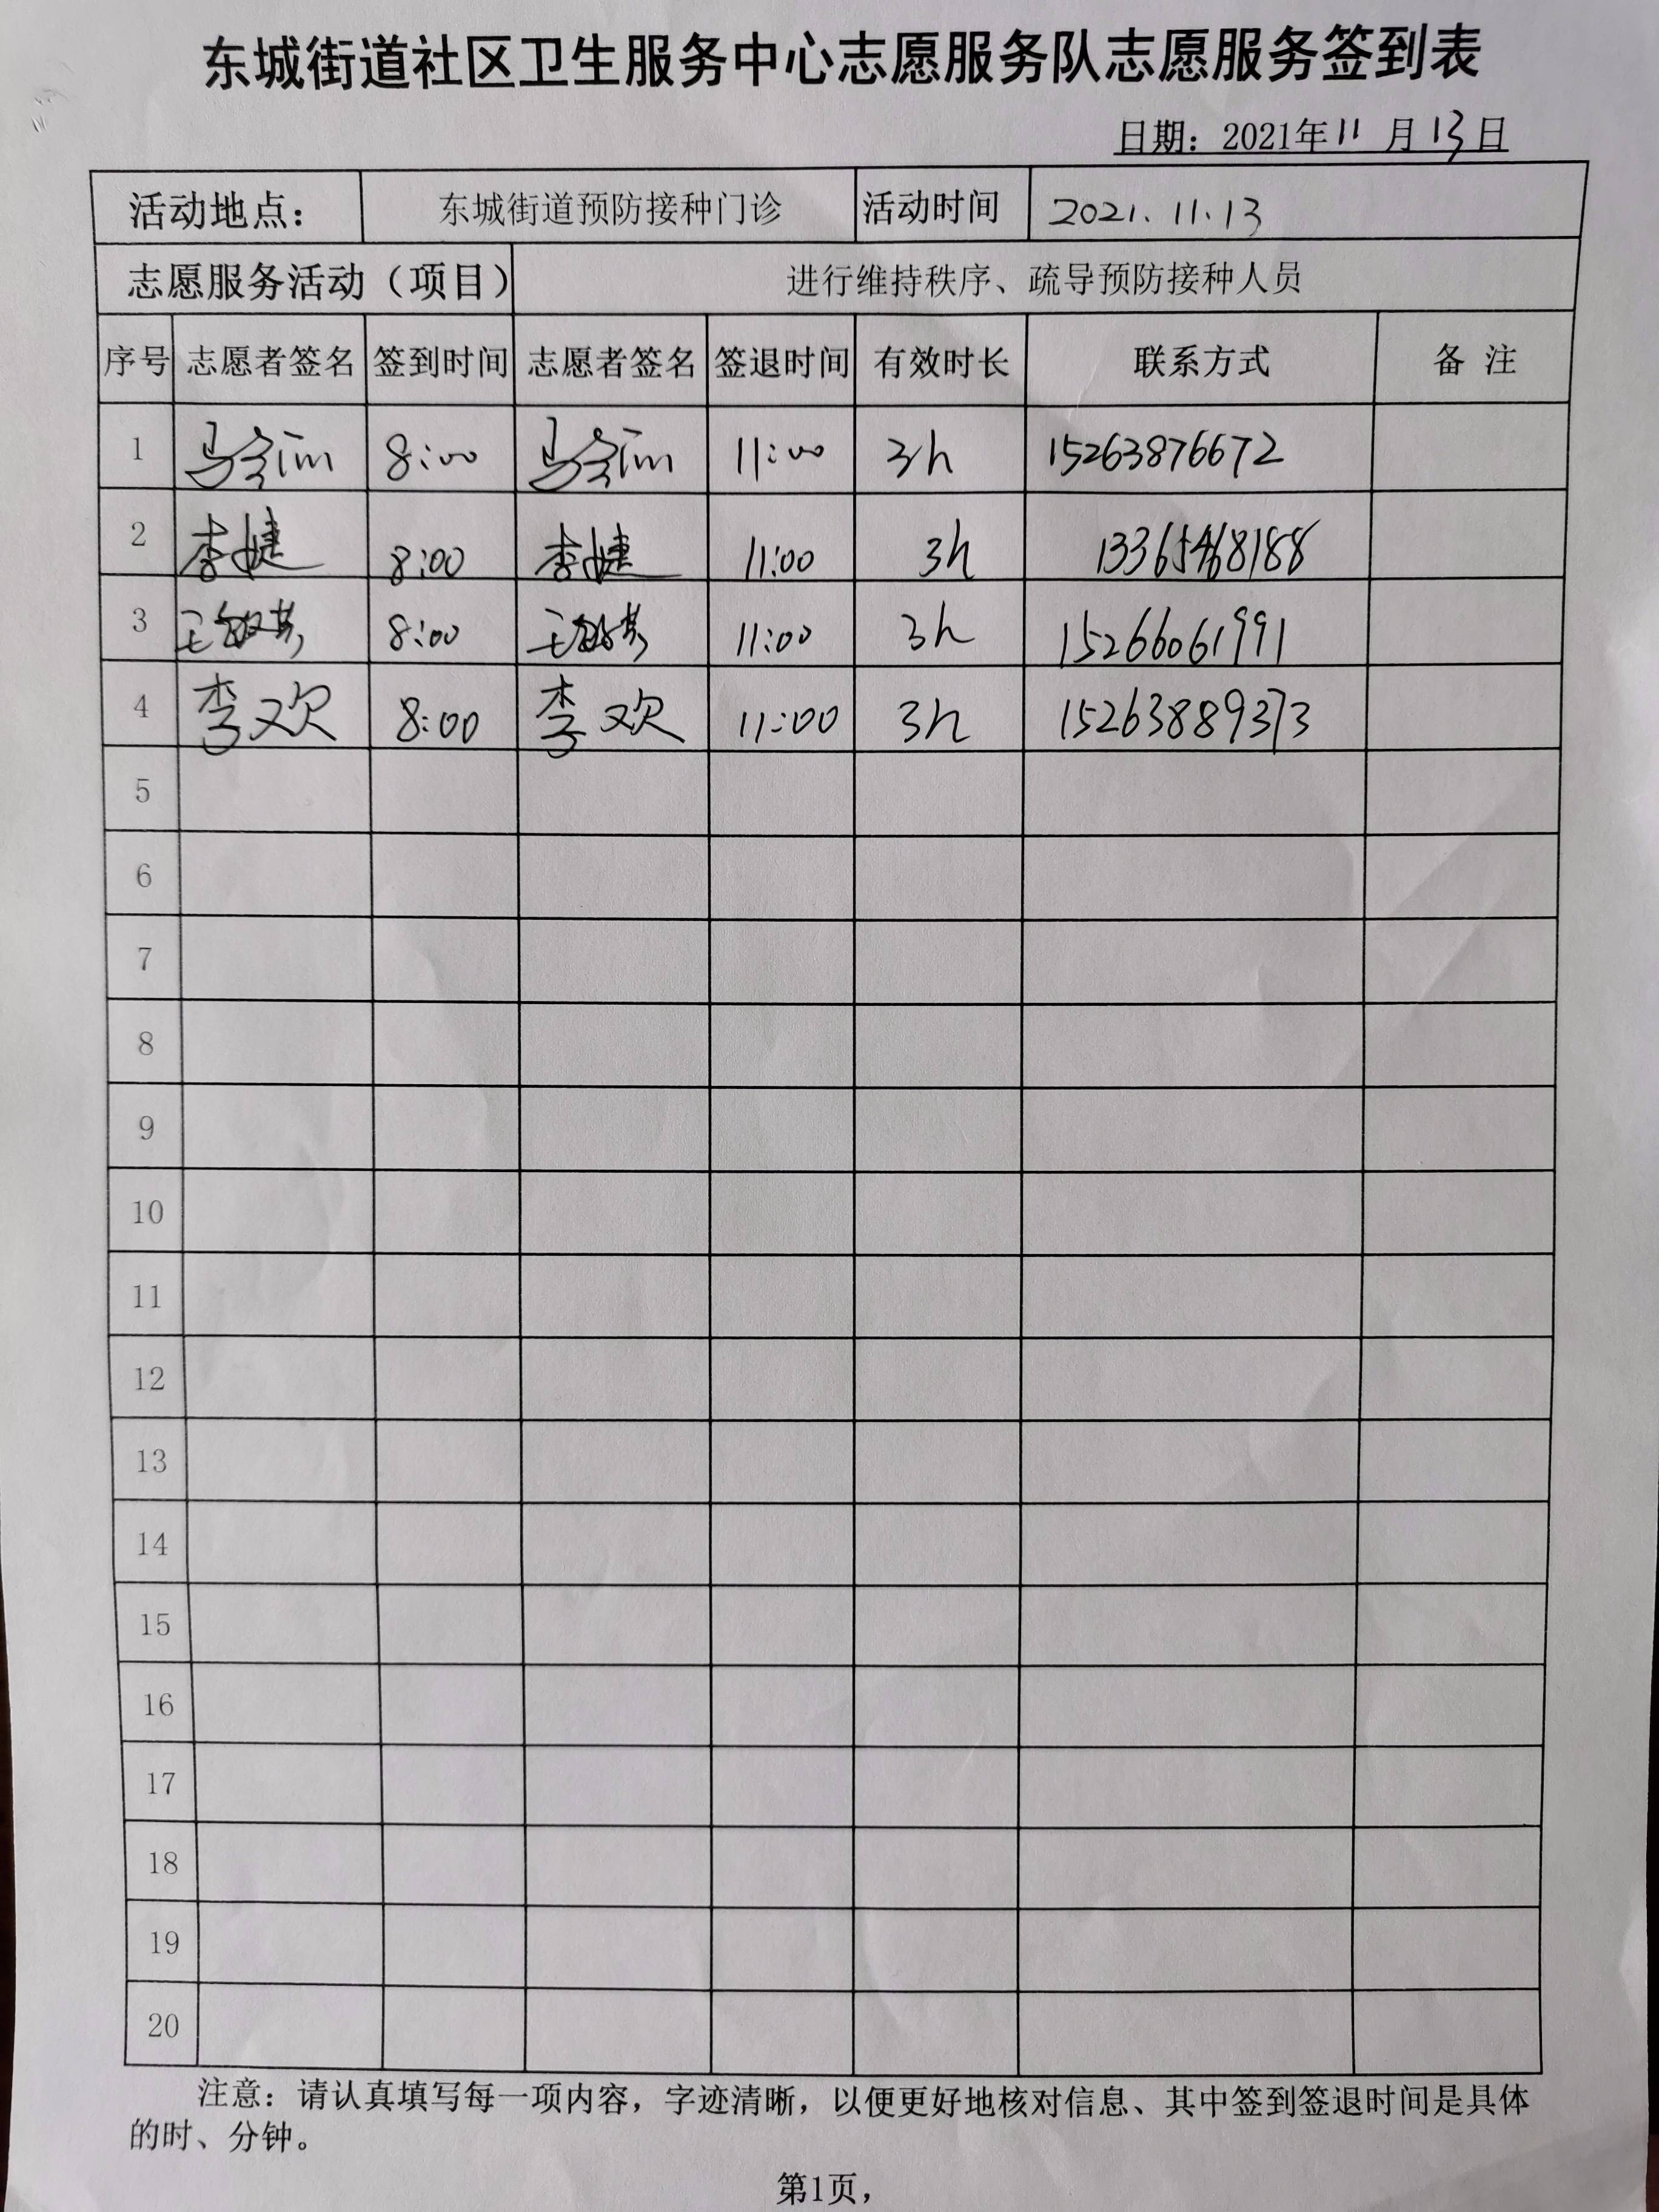 东城街道社区卫生服务中心志愿服务队志愿服务签到表
日期：2021年11月13日
活动地点： 东城街道预防接种门诊 活动时间 2021.11.13
志愿服务活动（项目） 进行维持秩序、疏导预防接种人员
序号 志愿者签名 签到时间 志愿者签名 签退时间 有效时长 联系方式 备 注
1 8:00 11:00 3h 15263876672
2 李婕 8:00 李婕 11:00 3h 13365468188
3 8:00 11:00 3h 15266061991
4 李欢 8:00 李欢 11:00 3h 15263889373
5
6
7
8
9
10
11
12
13
14
15
16
17
18
19
20
注意：请认真填写每一项内容，字迹清晰，以便更好地核对信息、其中签到签退时间是具体
的时、分钟。
第1页，